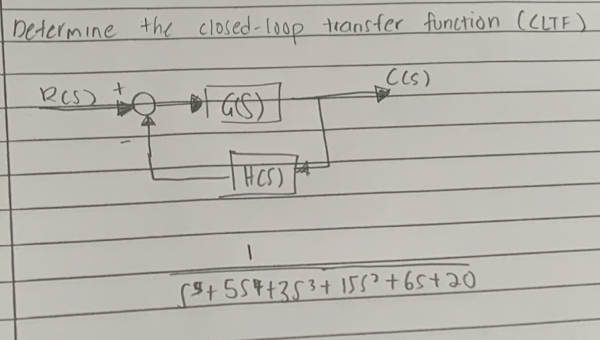 Determine the closed-loop transfer function (CLTF)
R(S) + G(S) C(S)
-
H(S)
1
s⁵+5s⁴+3s³+15s²+6s+20